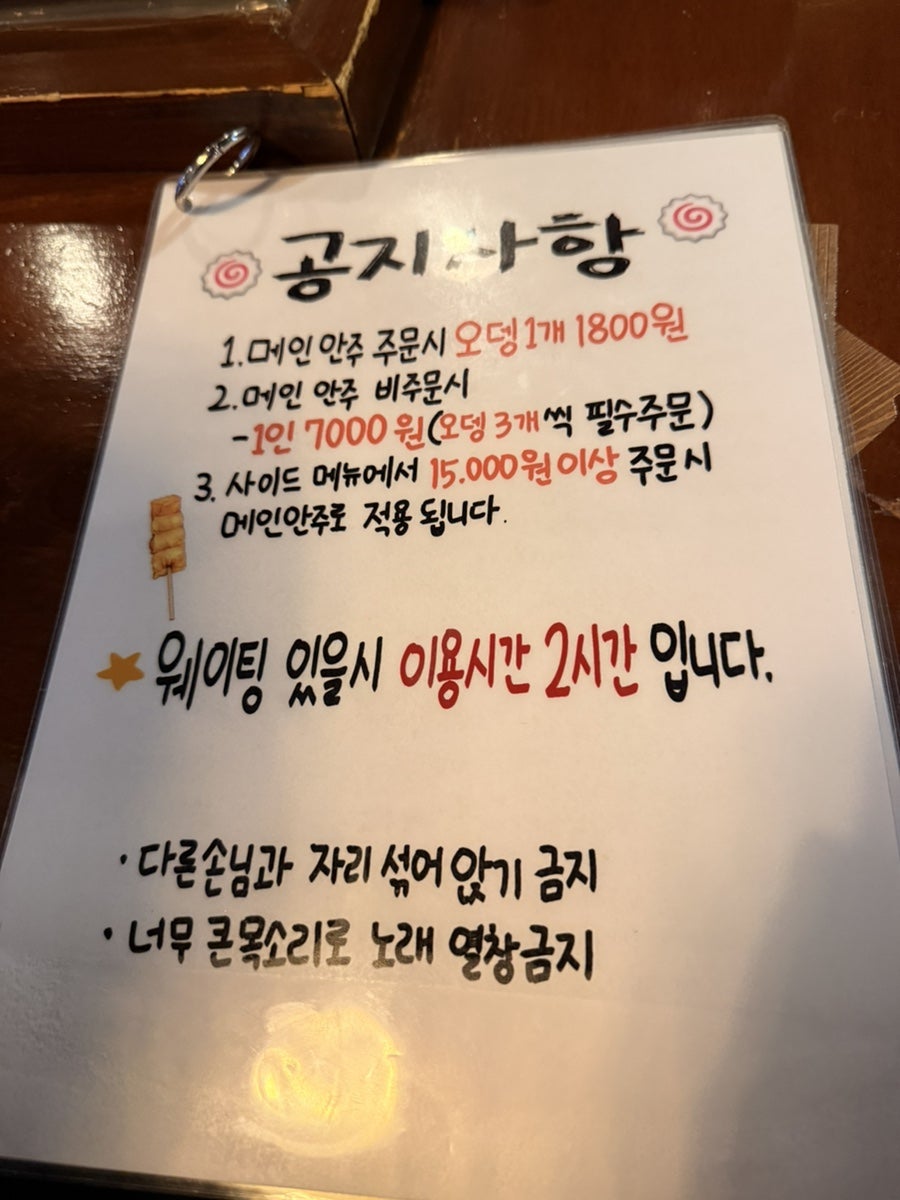 공지사항
1. 메인 안주 주문시 오뎅1개 1800원
2. 메인 안주 비주문시
- 1인 7000원(오뎅 3개씩 필수주문)
3. 사이드 메뉴에서 15.000원이상 주문시
메인안주로 적용됩니다.
웨이팅 있을시 이용시간 2시간 입니다.
· 다른손님과 자리 섞어 앉기 금지
· 너무 큰목소리로 노래 열창금지